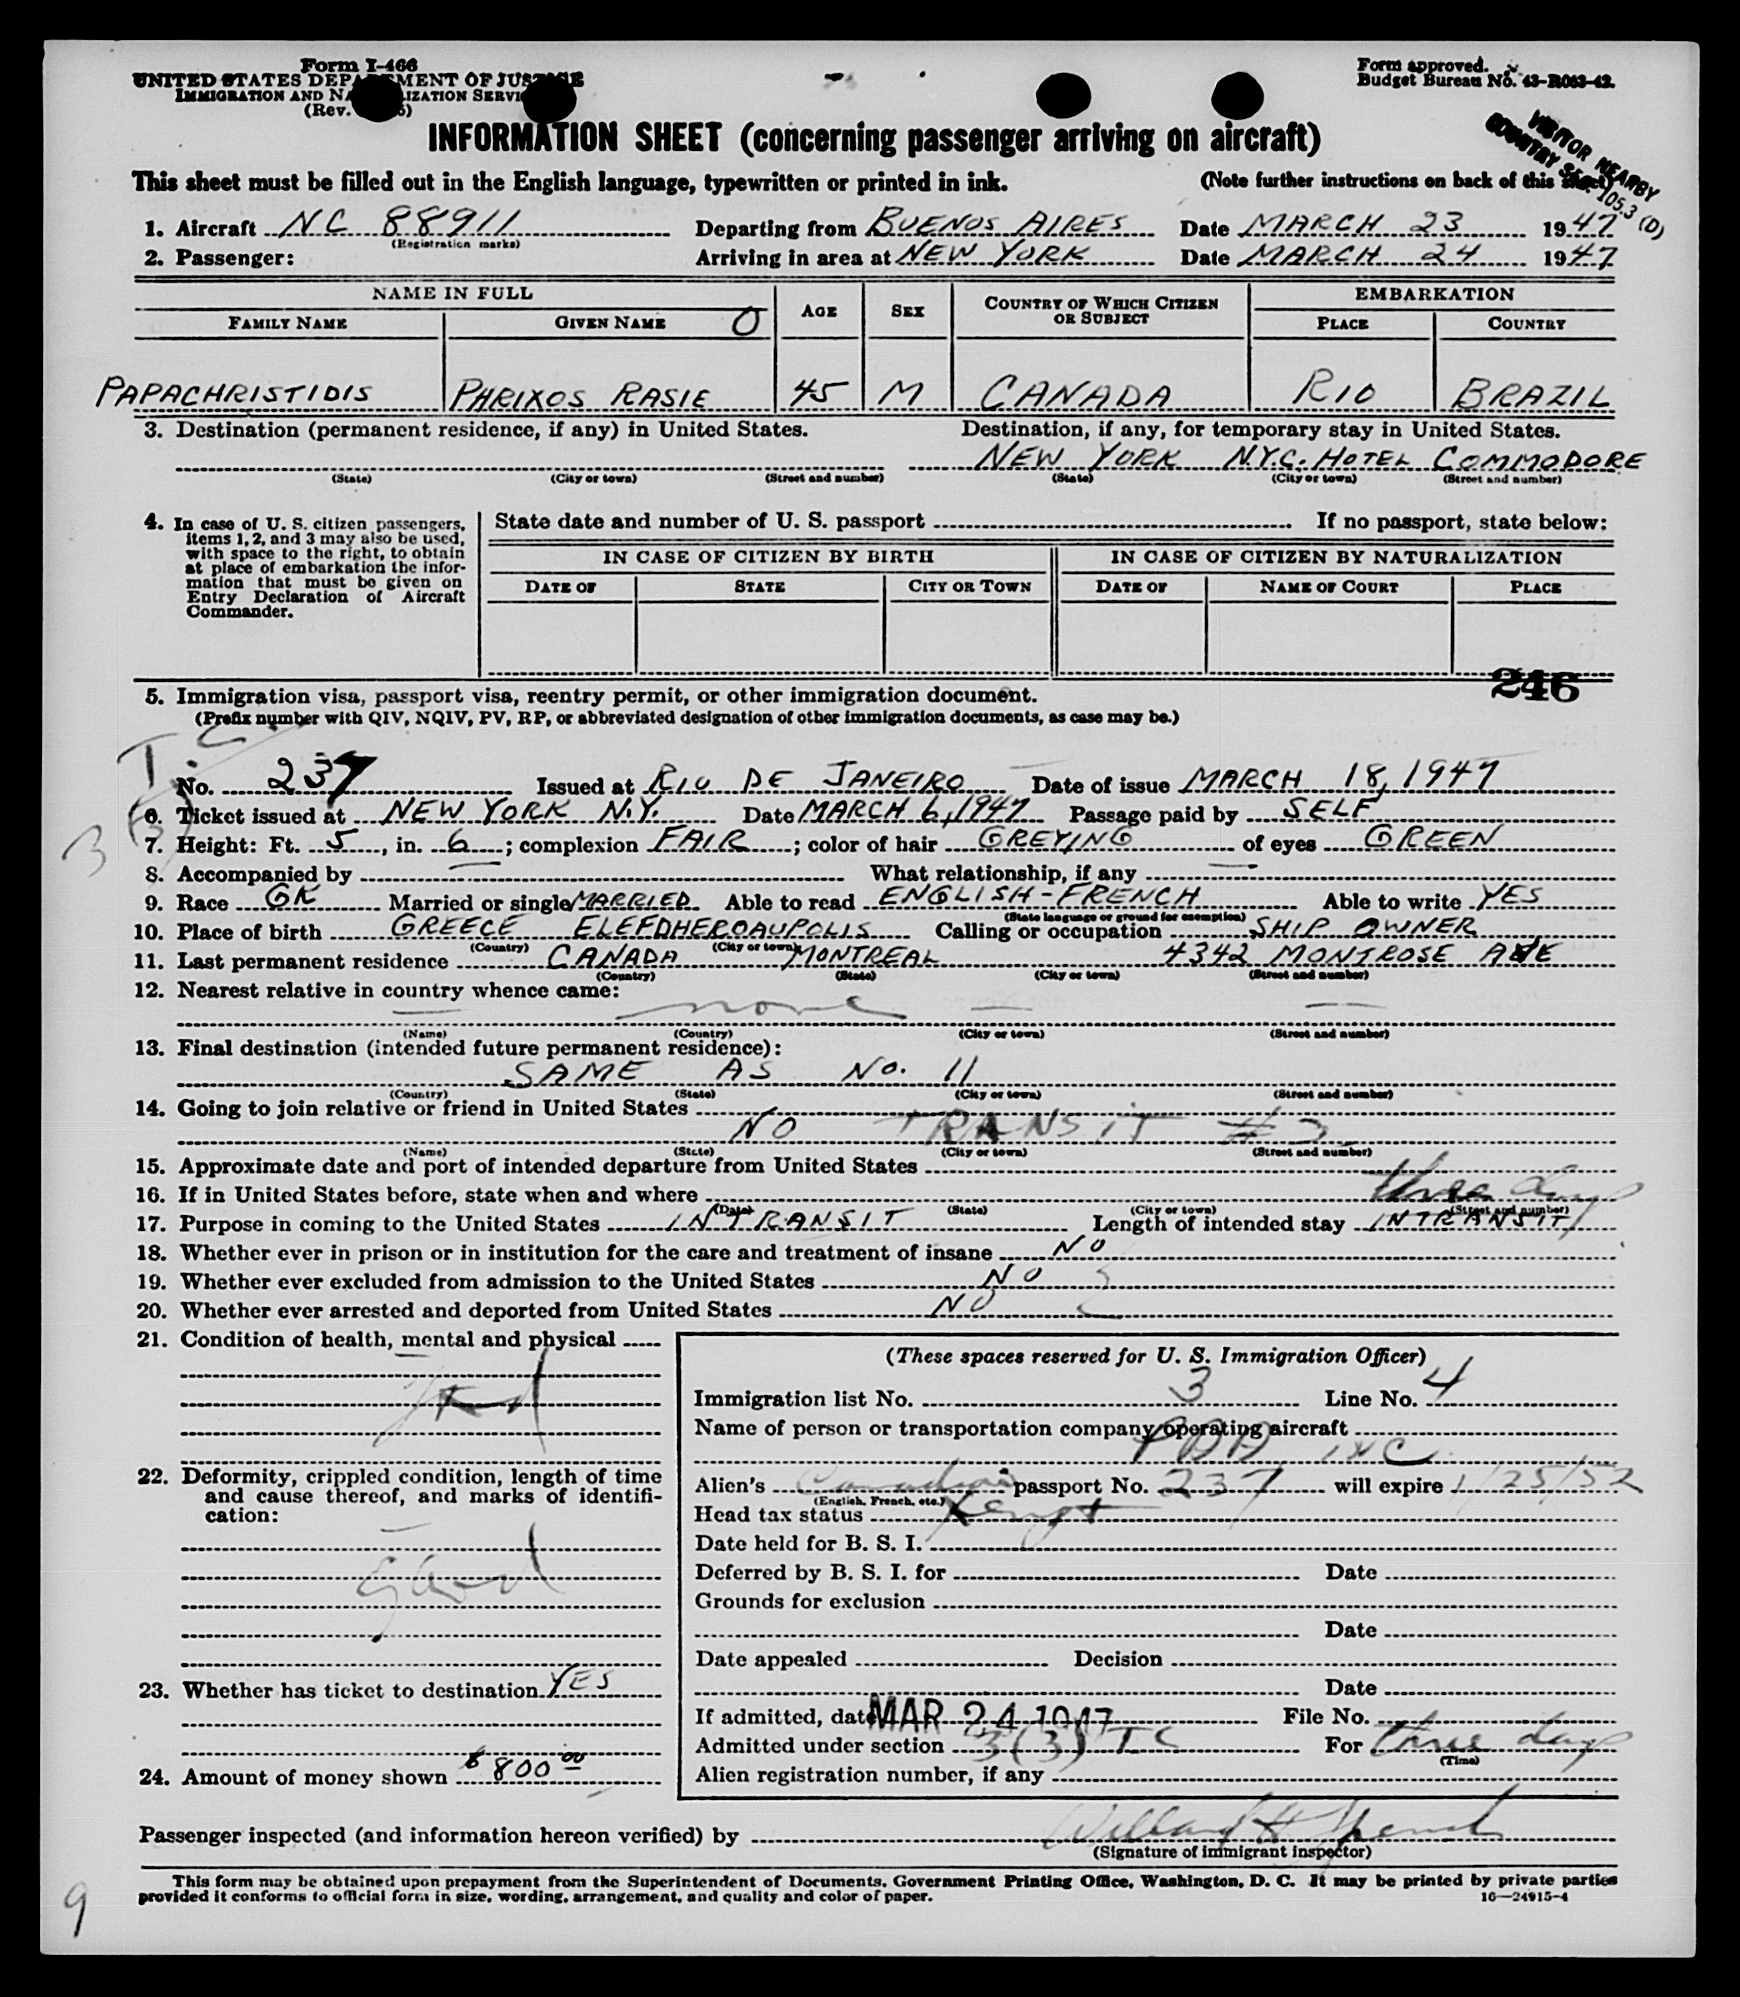 Form I-466
UNITED STATES DEPARTMENT OF JUSTICE
IMMIGRATION AND NATURALIZATION SERVICE
(Rev.
Form approved.
Budget Bureau No. 43-R083-42.
VISITOR NEARBY
COUNTRY SEC. 105.3 (D)
INFORMATION SHEET (concerning passenger arriving on aircraft)
This sheet must be filled out in the English language, typewritten or printed in ink. (Note further instructions on back of this sheet)
1. Aircraft NC 88911 Departing from BUENOS AIRES Date MARCH 23 1947
(Registration marks)
2. Passenger: Arriving in area at NEW YORK Date MARCH 24 1947
NAME IN FULL AGE SEX COUNTRY OF WHICH CITIZEN OR SUBJECT EMBARKATION
FAMILY NAME GIVEN NAME O PLACE COUNTRY
PAPACHRISTIDIS PHRIXOS RASIE 45 M CANADA RIO BRAZIL
3. Destination (permanent residence, if any) in United States. Destination, if any, for temporary stay in United States.
NEW YORK N.Y.C. HOTEL COMMODORE
(State) (City or town) (Street and number) (State) (City or town) (Street and number)
4. In case of U. S. citizen passengers, items 1, 2, and 3 may also be used, with space to the right, to obtain at place of embarkation the information that must be given on Entry Declaration of Aircraft Commander.
State date and number of U. S. passport If no passport, state below:
IN CASE OF CITIZEN BY BIRTH IN CASE OF CITIZEN BY NATURALIZATION
DATE OF STATE CITY OR TOWN DATE OF NAME OF COURT PLACE
246
5. Immigration visa, passport visa, reentry permit, or other immigration document.
(Prefix number with QIV, NQIV, PV, RP, or abbreviated designation of other immigration documents, as case may be.)
T.C.
No. 237 Issued at RIO DE JANEIRO Date of issue MARCH 18, 1947
3 (3)
6. Ticket issued at NEW YORK N.Y. Date MARCH 6, 1947 Passage paid by SELF
7. Height: Ft. 5, in. 6; complexion FAIR; color of hair GREYING of eyes GREEN
8. Accompanied by — What relationship, if any —
9. Race GK Married or single MARRIED Able to read ENGLISH-FRENCH Able to write YES
(State language or ground for exemption)
10. Place of birth GREECE ELEFDHEROAUPOLIS Calling or occupation SHIP OWNER
(Country) (City or town)
11. Last permanent residence CANADA MONTREAL 4342 MONTROSE AVE
(Country) (State) (City or town) (Street and number)
12. Nearest relative in country whence came:
— none — —
(Name) (Country) (City or town) (Street and number)
13. Final destination (intended future permanent residence):
SAME AS No. 11
(Country) (State) (City or town) (Street and number)
14. Going to join relative or friend in United States
NO TRANSIT #3
(Name) (State) (City or town) (Street and number)
15. Approximate date and port of intended departure from United States
16. If in United States before, state when and where three days
(Date) (State) (City or town) (Street and number)
17. Purpose in coming to the United States IN TRANSIT Length of intended stay INTRANSIT
18. Whether ever in prison or in institution for the care and treatment of insane NO
19. Whether ever excluded from admission to the United States NO
20. Whether ever arrested and deported from United States NO
21. Condition of health, mental and physical
22. Deformity, crippled condition, length of time and cause thereof, and marks of identification:
Good
23. Whether has ticket to destination YES
24. Amount of money shown $800.00
(These spaces reserved for U. S. Immigration Officer)
Immigration list No. 3 Line No. 4
Name of person or transportation company operating aircraft
PAA INC
Alien's Canadian passport No. 237 will expire 1/25/52
(English, French, etc.)
Head tax status Xempt
Date held for B. S. I.
Deferred by B. S. I. for Date
Grounds for exclusion
Date
Date appealed Decision
Date
If admitted, date MAR 24 1947 File No.
Admitted under section 3(3) TC For three days
(Time)
Alien registration number, if any
Passenger inspected (and information hereon verified) by Willard H
(Signature of immigrant inspector)
This form may be obtained upon prepayment from the Superintendent of Documents, Government Printing Office, Washington, D. C. It may be printed by private parties
provided it conforms to official form in size, wording, arrangement, and quality and color of paper. 16—24915-4
9